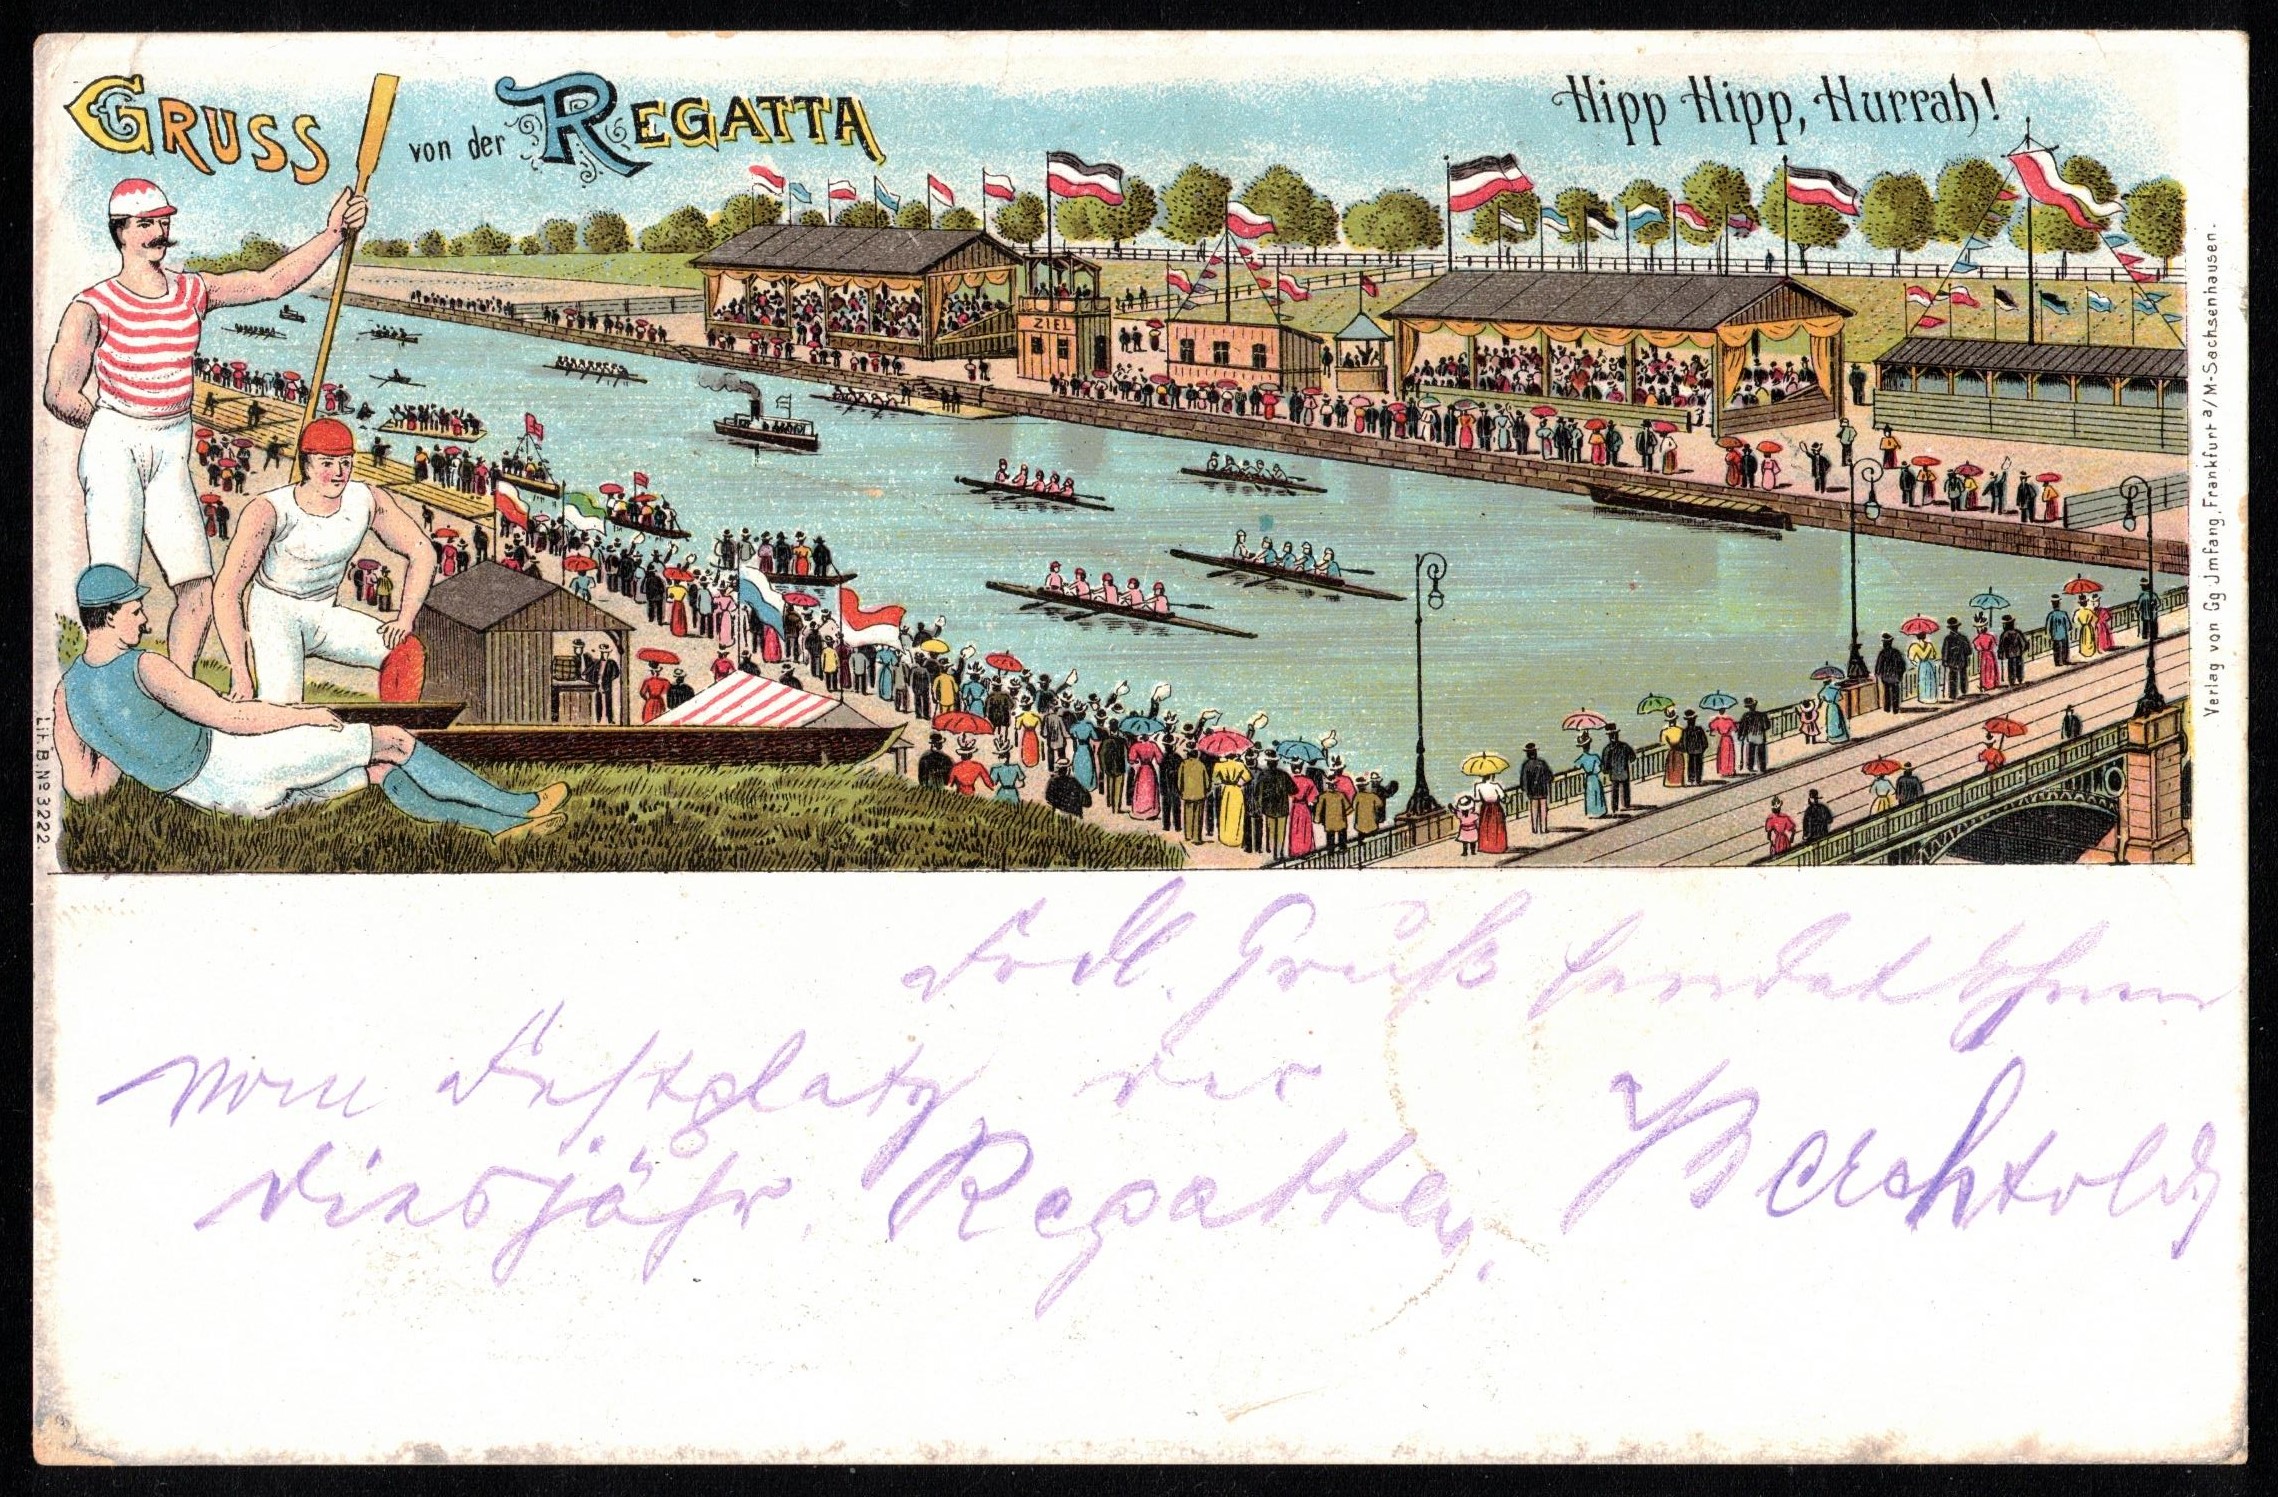 GRUSS von der REGATTA
Hipp Hipp, Hurrah!
ZIEL
Verlag von Gg Jmfang, Frankfurt a/M-Sachsenhausen.
Lit. B. No 3222.
Frdl. Gruß sendet Ihnen
vom Festplatz der
diesjähr. Regatta,
Berchtold